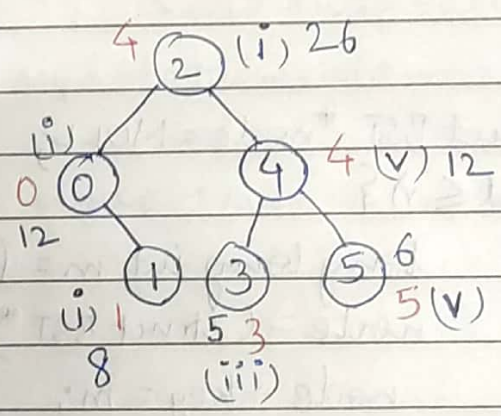 4 2 (i) 26
(i)
0 0 4 4 (v) 12
12
1 3 5 6
(i) 1 5 3 5 (v)
8 (iii)